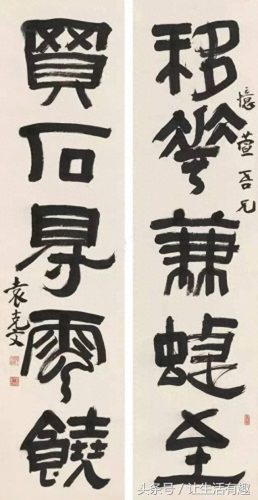 移華兼蝶至
憶萱吾兄
買石㝵雲饒
袁克文
头条号 / 让生活有趣